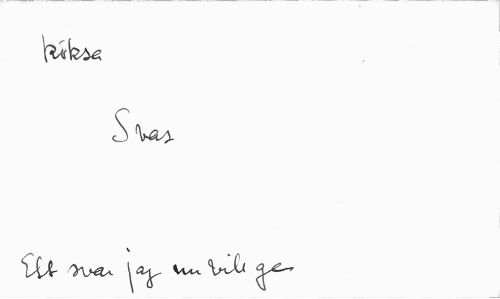 köksa
Svar
Ett svar jag nu vill ge